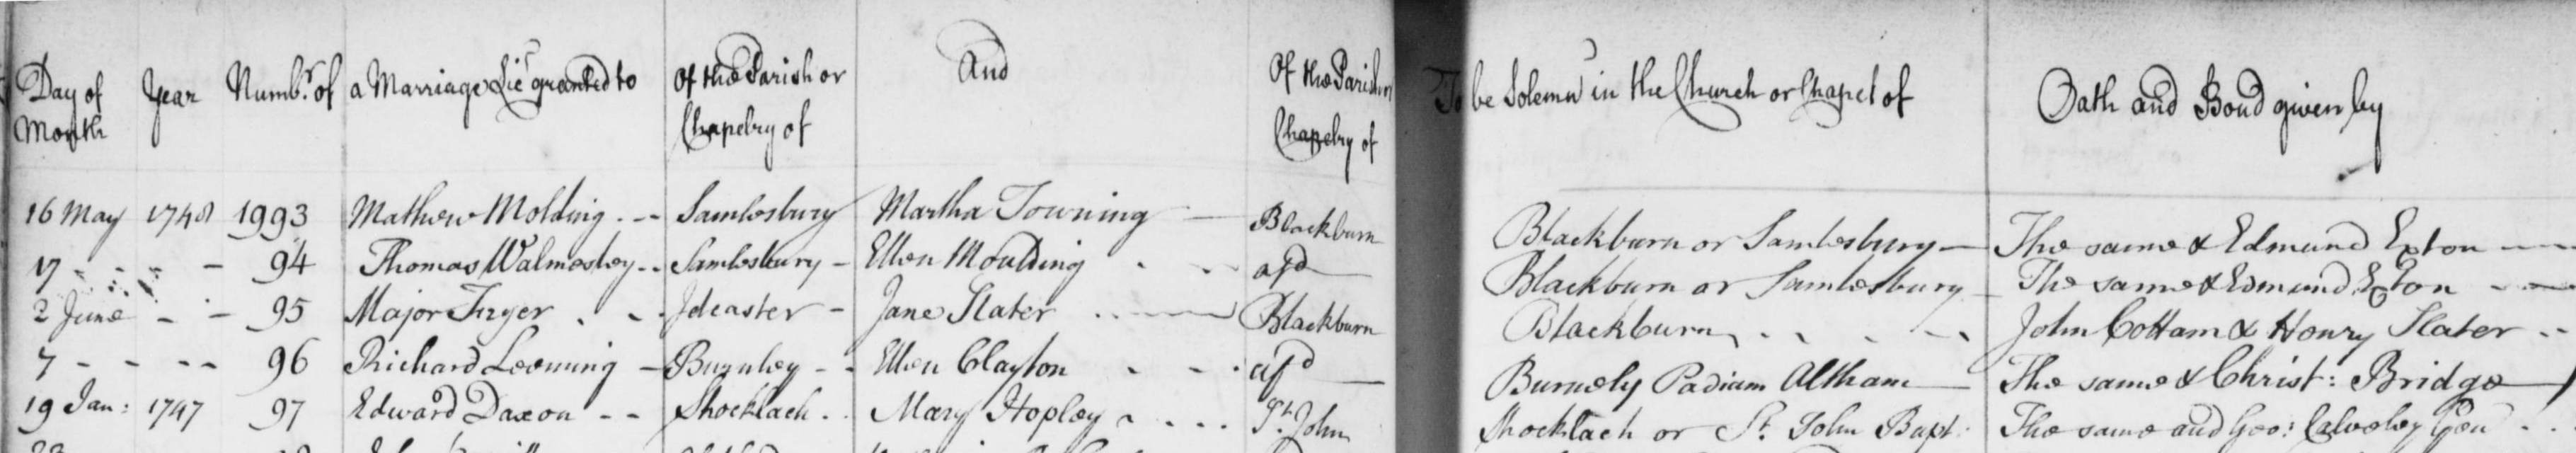 Day of Month Year Numb.r of a Marriage Lic granted to Of the Parish or Chapelry of And Of the Parish or Chapelry of To be Solemn in the Church or Chapel of Oath and Bond given by
16 May 1748 1993 Mathew Molding Samlesbury Martha Towning Blackburn Blackburn or Samlesbury The same & Edmund Exton
17 94 Thomas Walmesley Samlesbury Ellen Moulding afd Blackburn or Samlesbury The same & Edmund Exton
2 June 95 Major Fryer Jane Slater Blackburn Blackburn John Cottam & Henry Slater
7 96 Richard Leeming Burnley Ellen Clayton afd Burnely Padiam Altham The same & Christ: Bridge
19 Jan: 1747 97 Edward Daxon Shocklach Mary Hopley St. John Shocklach or St. John Bapt The same and Geo: Calveley Gen